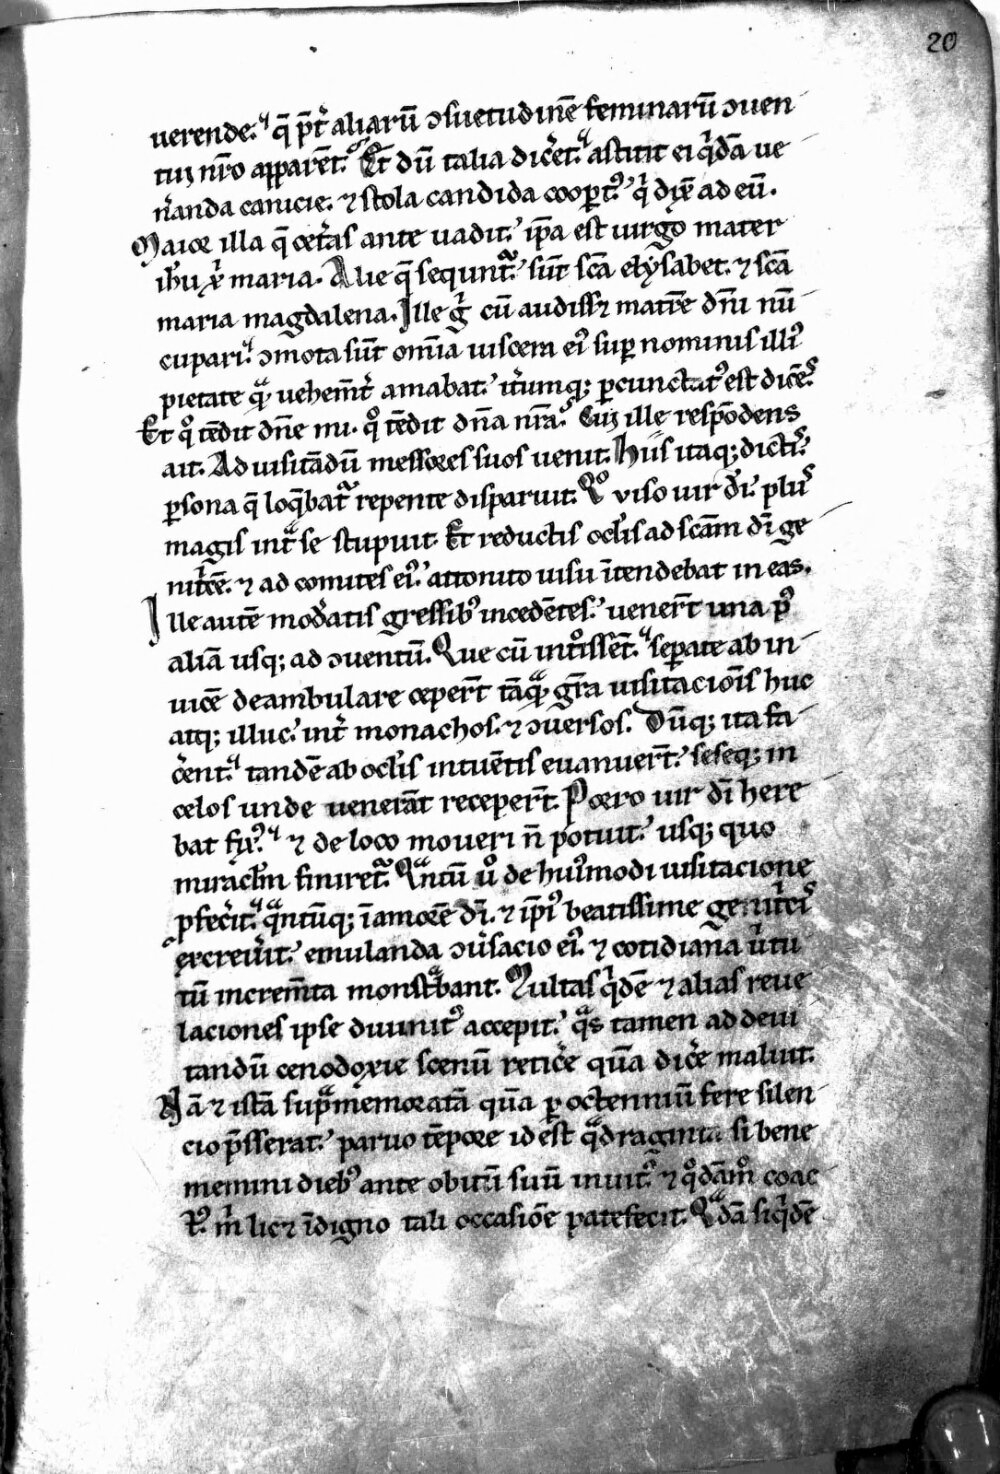 20
verende. q̄ p̄t̉ aliarū ɔsuetudinē feminarū ɔuen
tui nr̄o apparēt. Et dū talia dic̉et. astitit ei q̉dā ve
n̉anda canicie. ⁊ stola candida coop̲t᷒. q̉ dix̄ ad eū.
Maior illa q̄ cet̉as ante uadit. ip̄a est uirgo mater
ih̄u xp̄i maria. Alie q̄ sequnt᷑. sūt sc̄a elysabet. ⁊ sc̄a
maria magdalena. Ille g̉ cū audisset matrē dn̄i nū
cupari. ɔmota sūt om̄ia uiscera ei᷒ sup̲ nominis illi᷒
pietate qᷓ uehem̄t̉ amabat. it̉umq; p̲cunctat᷒ est dicēs.
Et qͦ tēdit dn̄e mi. qͦ tēdit dn̄a nr̄a. Cui ille respōdens
ait. Ad uisitādū messores suos uenit. Hiis itaq; dictis.
p̲sona q̄ loq̄bat᷑ repente disparuit. Qͦ viso uir dī. plus
magis int̉ se stupuit. Et reductis oc̄lis ad sc̄am dī ge
nit̉cē. ⁊ ad comites ei᷒. attonito uisu ītendebat in eas.
Ille autē mod̉atis gressib᷒ incedētes. uener̄t una p᷒
aliā usq; ad ɔuentū. Que cū int̉issēt. sep̲ate ab in
uicē deambulare ceper̄t tāqᷓ gr̄a uisitacion̄is huc
atq; illuc. int̉ monachos. ⁊ ɔuersos. Dūq; ita fa
c̉ent. tandē ab oc̄lis intuētis euanuer̄t. seseq; in
celos unde venerāt receper̄t. Porro uir dī here
bat fix᷒. ⁊ de loco moueri n̄ potuit. usq; quo
mirac̄lm finiret᷑. Qᷓntū ů de hui᷒modi uisitacione
p̲fec̉it. qᷓntūq; ī amorē dī. ⁊ ip̄i᷒ beatissime genit̉cis
excreuit. emulanda ɔủsacio ei᷒ ⁊ cotidiana ủtu
tū increm̄ta monstᷓbant. Multas q̉dē ⁊ alias reue
laciones ipse diuinit᷒ accepit. qᷓs tamen ad deui
tandū cenodoxie scenū retic̉e quā dic̉e maluit.
Nā ⁊ istā supᷓmemoratā quā p̲ octenniū fere silen
cio p̄sserat. paruo tēpore id est qᷓdraginta si bene
memini dieb᷒ ante obitū suū inuit᷒ ⁊ qͦdāmͦ coac
t᷒. m̉ licꝫ īdigno tali occasiōe patefecit. Qᷓdā siq̉dē